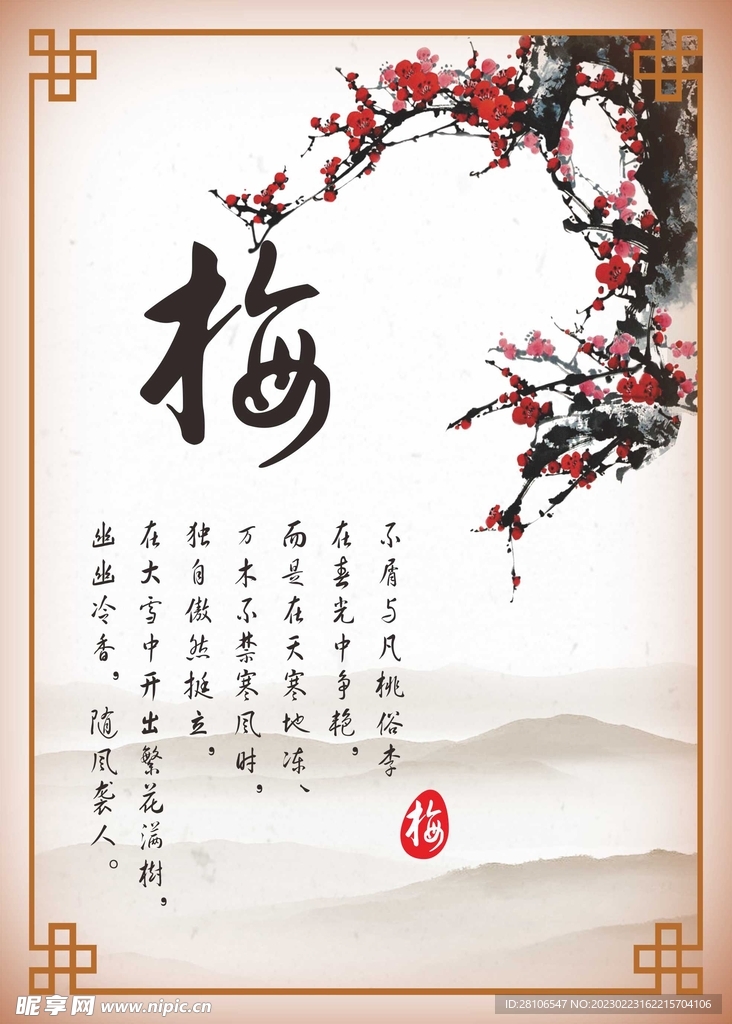 梅
不屑与凡桃俗李
在春光中争艳，
而是在天寒地冻、
万木不禁寒风时，
独自傲然挺立，
在大雪中开出繁花满樹，
幽幽冷香，随风袭人。
梅
昵享网 www.nipic.cn
ID:28106547 NO:20230223162215704106